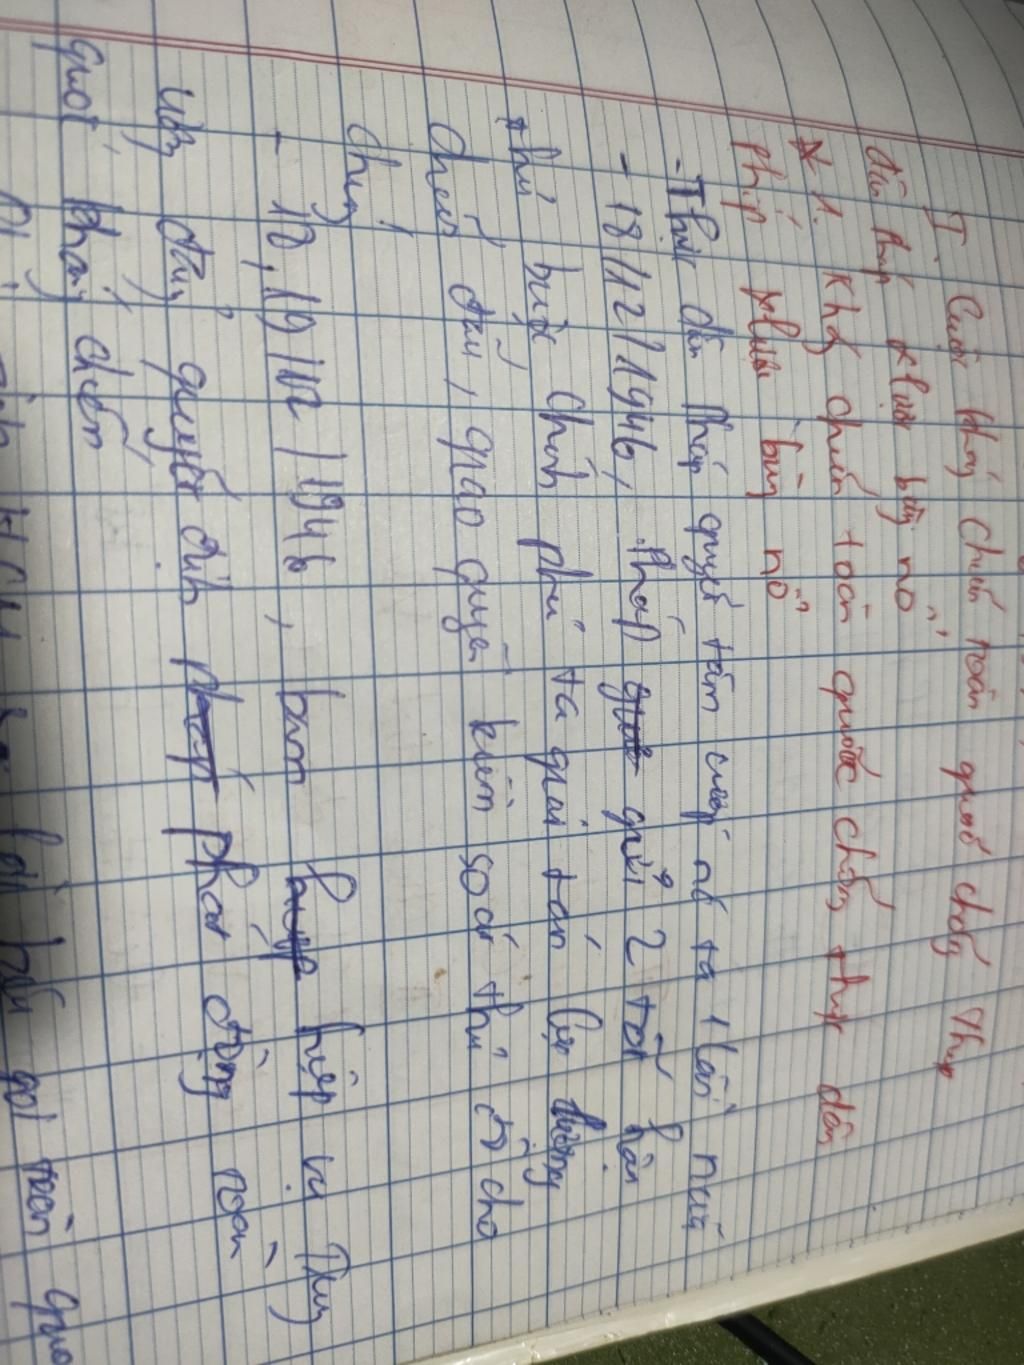 I Cuộc kháng chiến toàn quốc chống thực
dân Pháp bùng nổ
1. Kháng chiến toàn quốc chống thực dân
Pháp bùng nổ
- Thực dân Pháp quyết tâm cướp nước ta 1 lần nữa
- 18/12/1946, Pháp gửi 2 tối hậu
thư buộc Chính phủ ta giải tán lực lượng
chiến đấu, giao quyền kiểm soát thủ đô cho
chúng
- 18, 19/12/1946, ban hiệp vụ Trung
ương đảng quyết định phát động toàn
quốc kháng chiến
HCM lời gọi toàn quốc